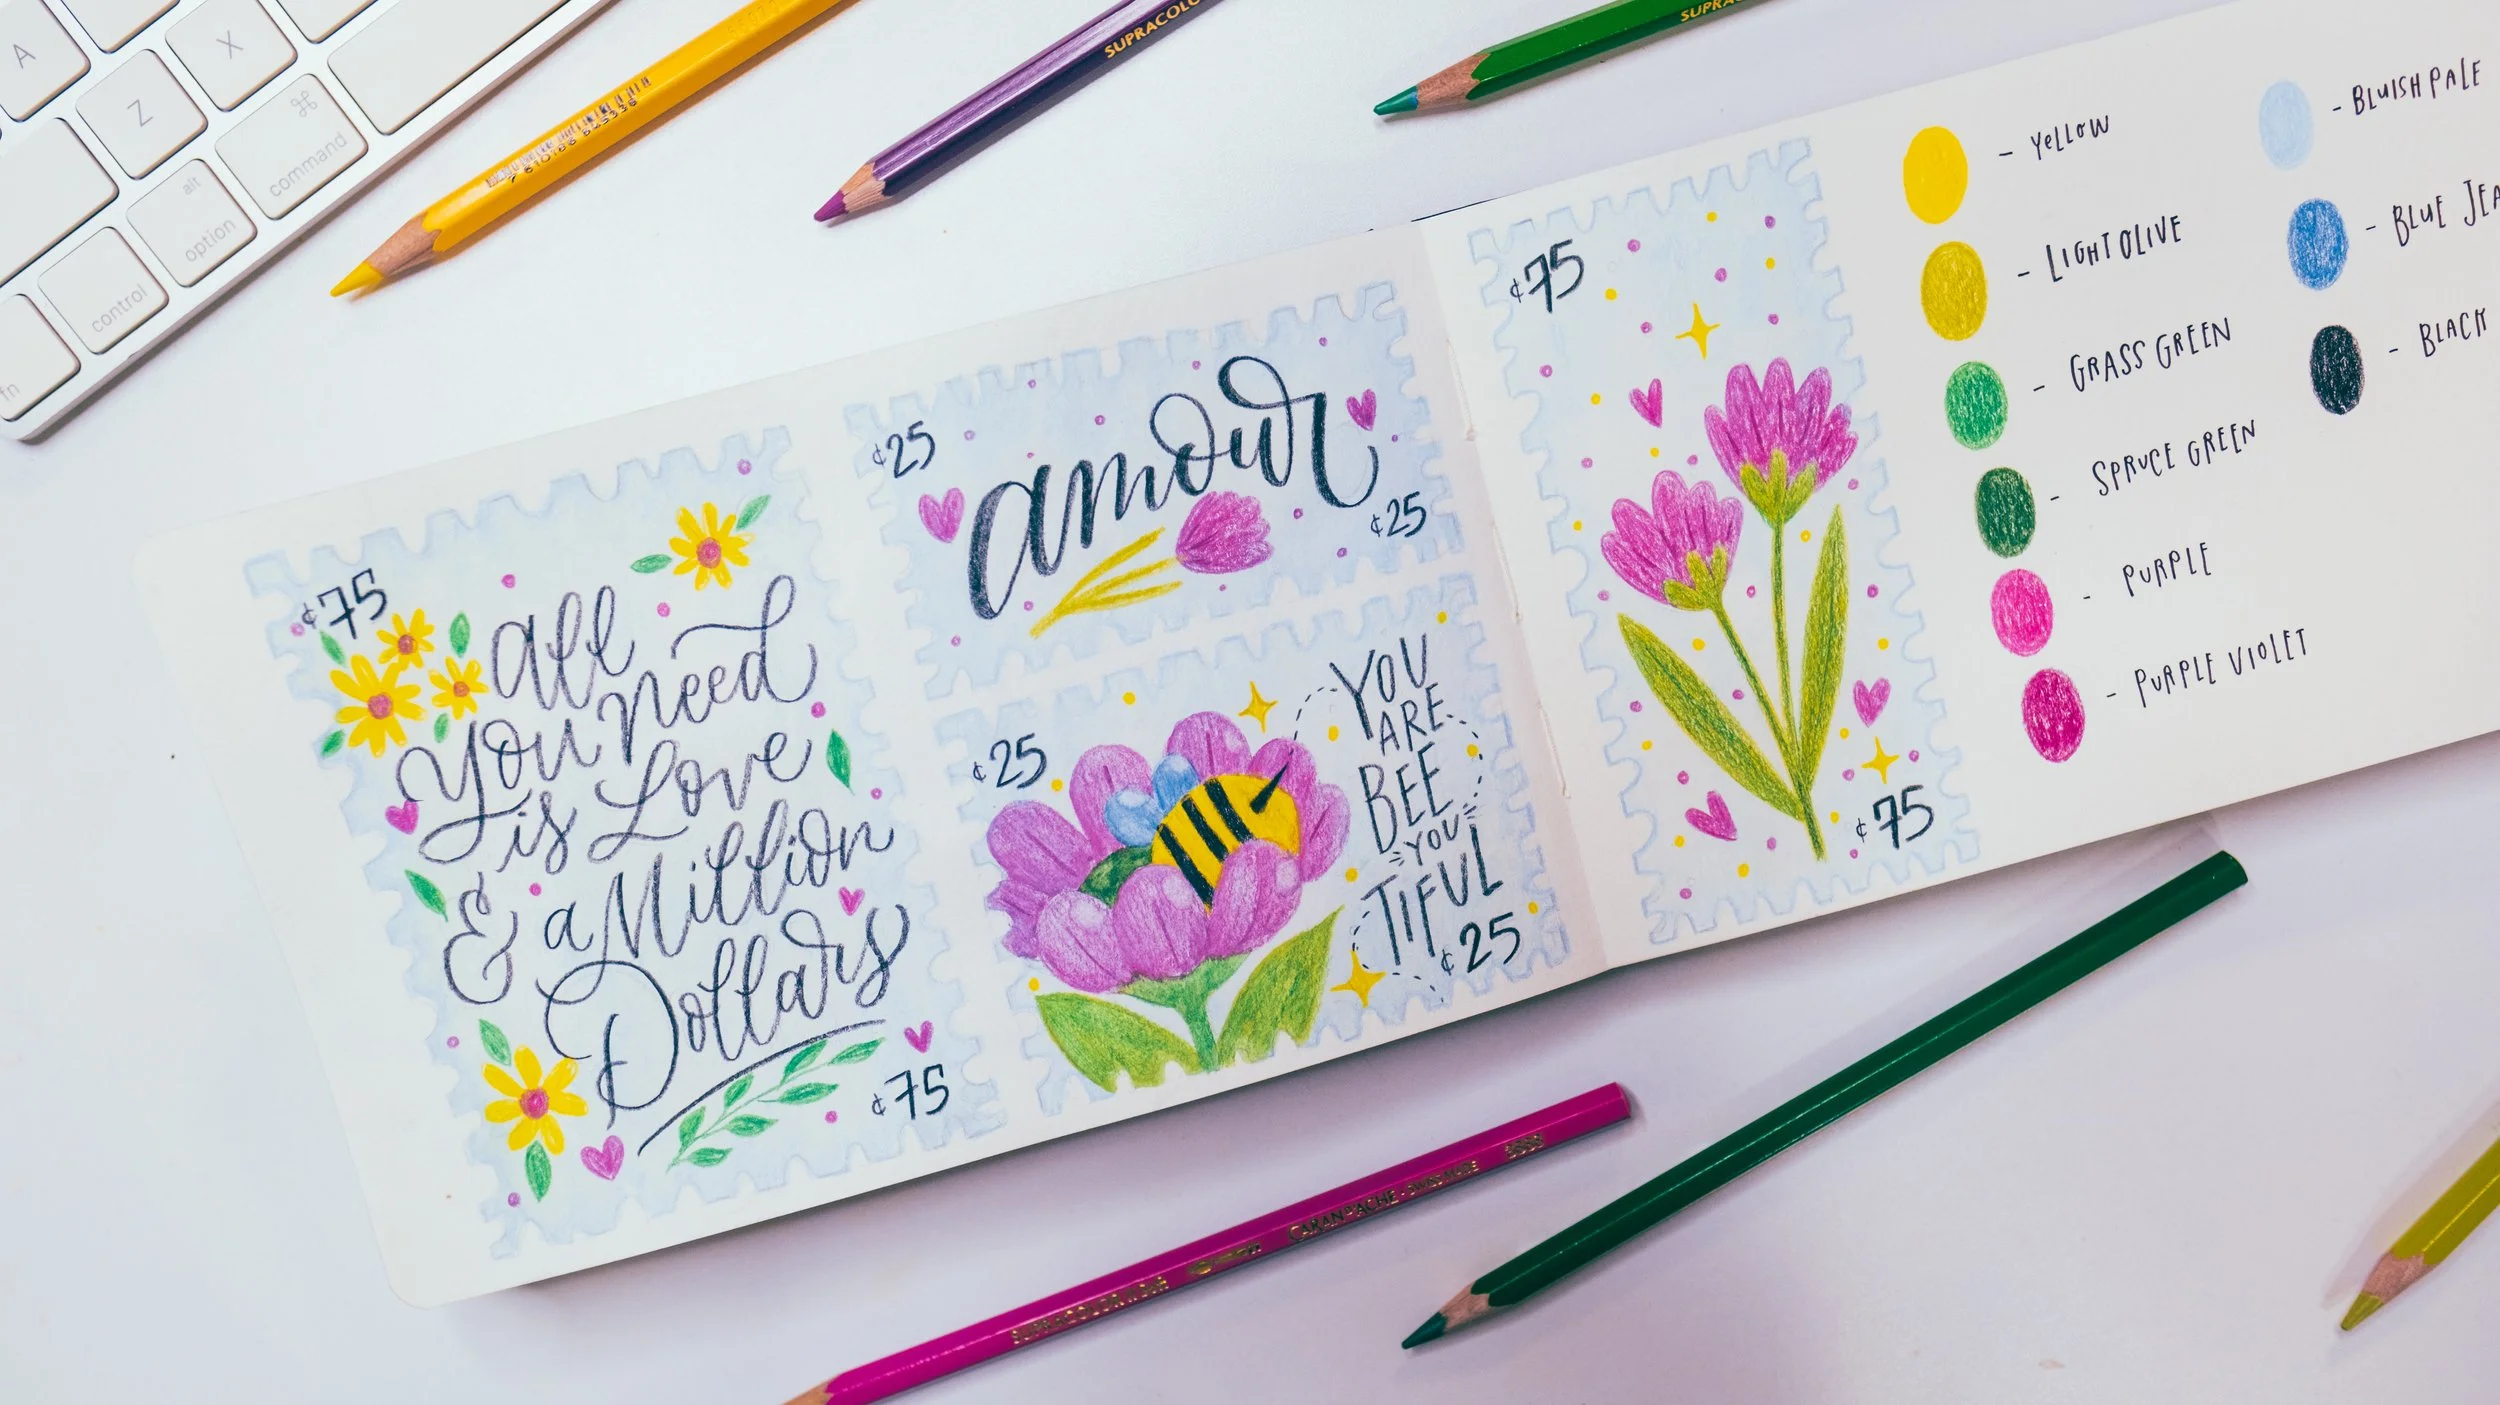 A
Z
X
⌘
command
alt
option
control
fn
7 610186 805338
SUPRACOLO
SUPRA
¢75
All
You Need
is Love
& a Million
Dollars
¢75
¢25
amour
¢25
¢25
YOU
ARE
BEE
YOU
TIFUL
¢25
¢75
¢75
- YELLOW
- LIGHT OLIVE
- GRASS GREEN
- SPRUCE GREEN
- PURPLE
- PURPLE VIOLET
- BLUISH PALE
- BLUE JEA
- BLACK
SUPRACOLOR
CARAN D'ACHE · SWISS MADE